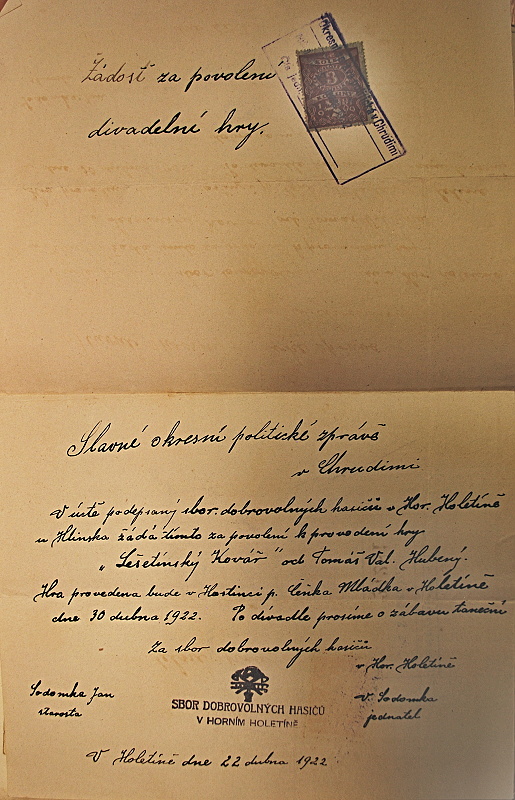 Žádost za povolení
divadelní hry.
Okresní
v Chrudimi
3
Slavné okresní politické správě
v Chrudimi
V úctě podepsaný sbor dobrovolných hasičů v Hor. Holetíně
u Hlinska žádá tímto za povolení k provedení hry
„Lešetínský Kovář" od Tomáš Val. Hubený.
Hra provedena bude v Hostinci p. Čeňka Mládka v Holetíně
dne 30 dubna 1922. Po divadle prosíme o zábavu taneční
Za sbor dobrovolných hasičů
v Hor. Holetíně
Sodomka Jan
starosta
SBOR DOBROVOLNÝCH HASIČŮ
V HORNÍM HOLETÍNĚ
V. Sodomka
jednatel
V Holetíně dne 22 dubna 1922